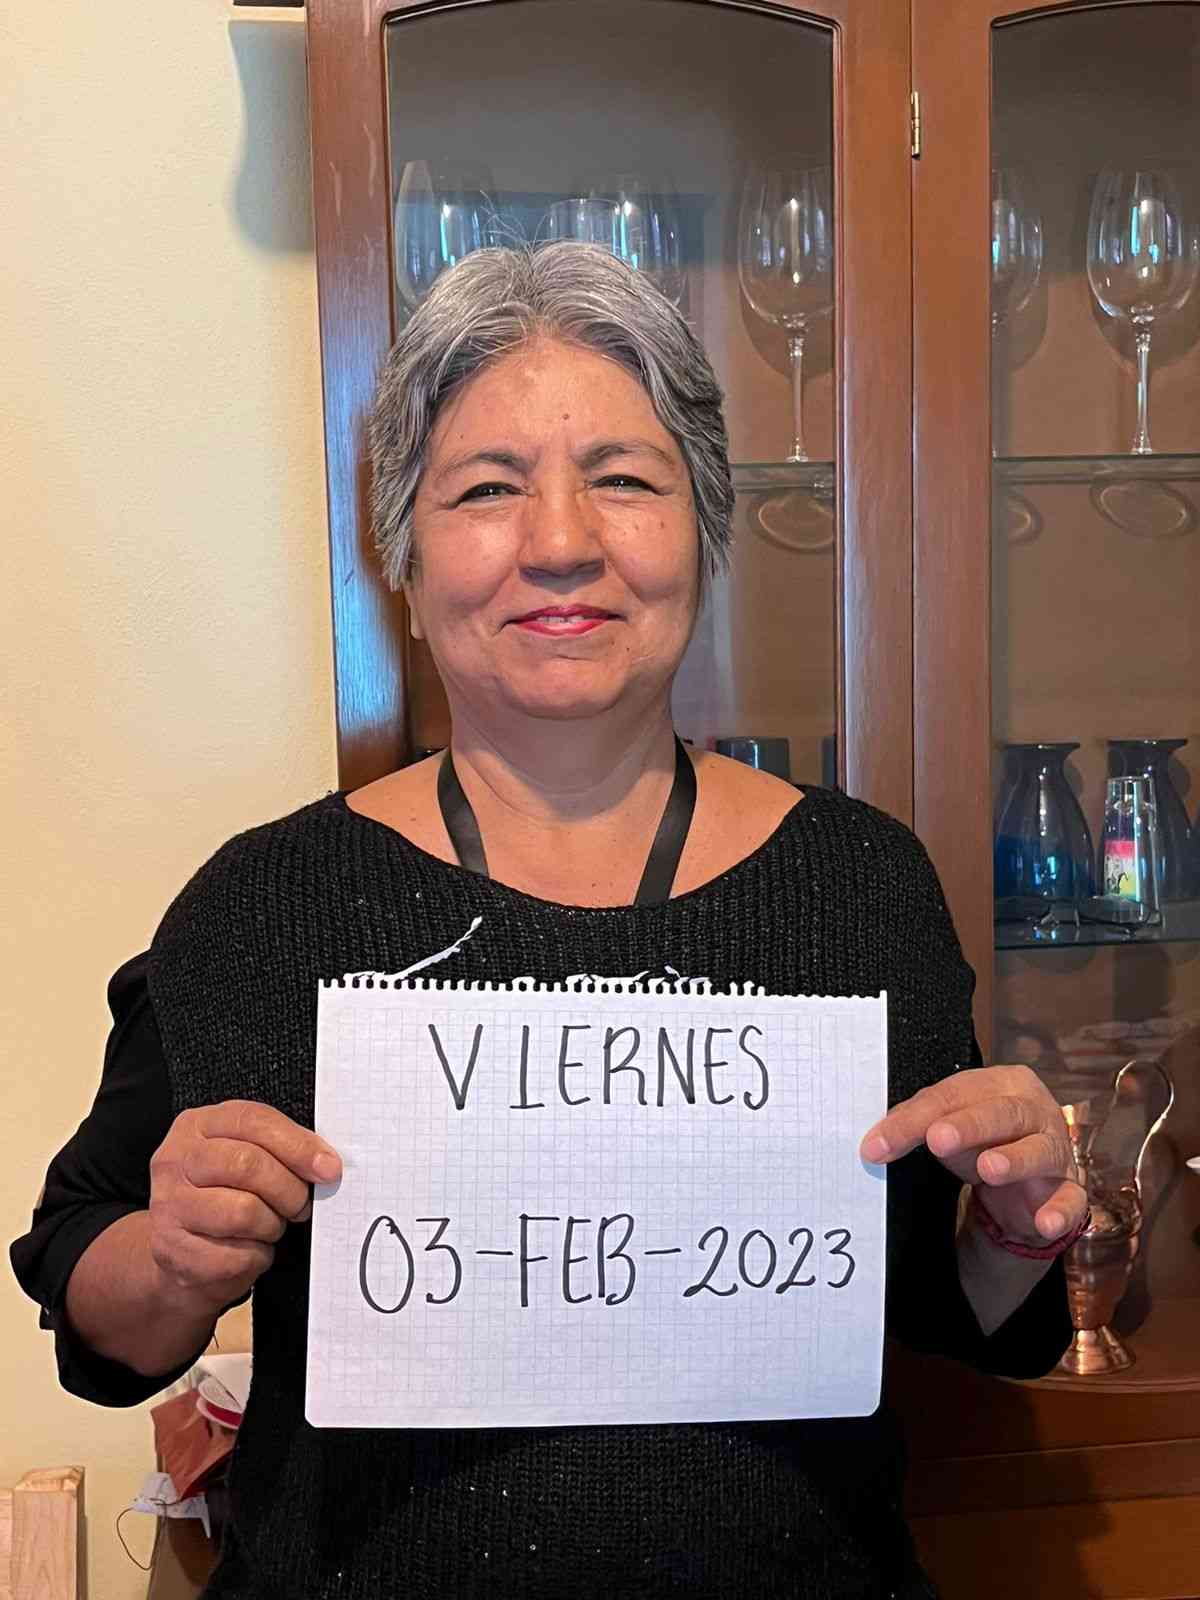 VIERNES
03-FEB-2023